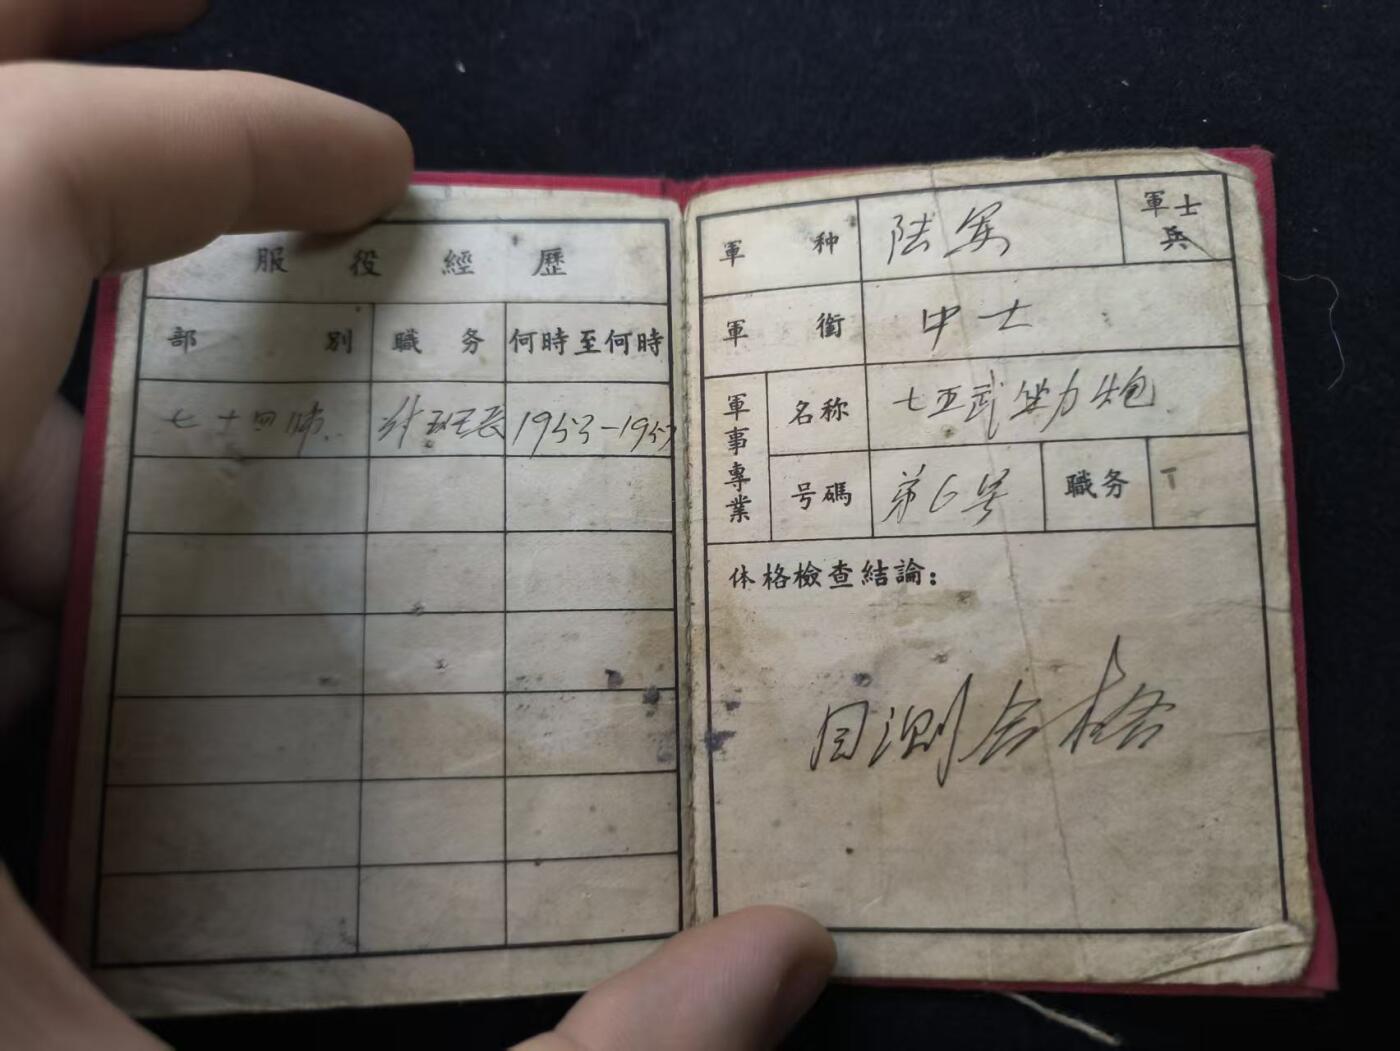 服役經歷
部别 職务 何時至何時
七十四师 付班长 1953-1957
軍种 陆军 軍士兵
軍銜 中士
軍事專業 名称 七五武坐力炮
号碼 第6号 職务
体格檢查結論:
目测合格